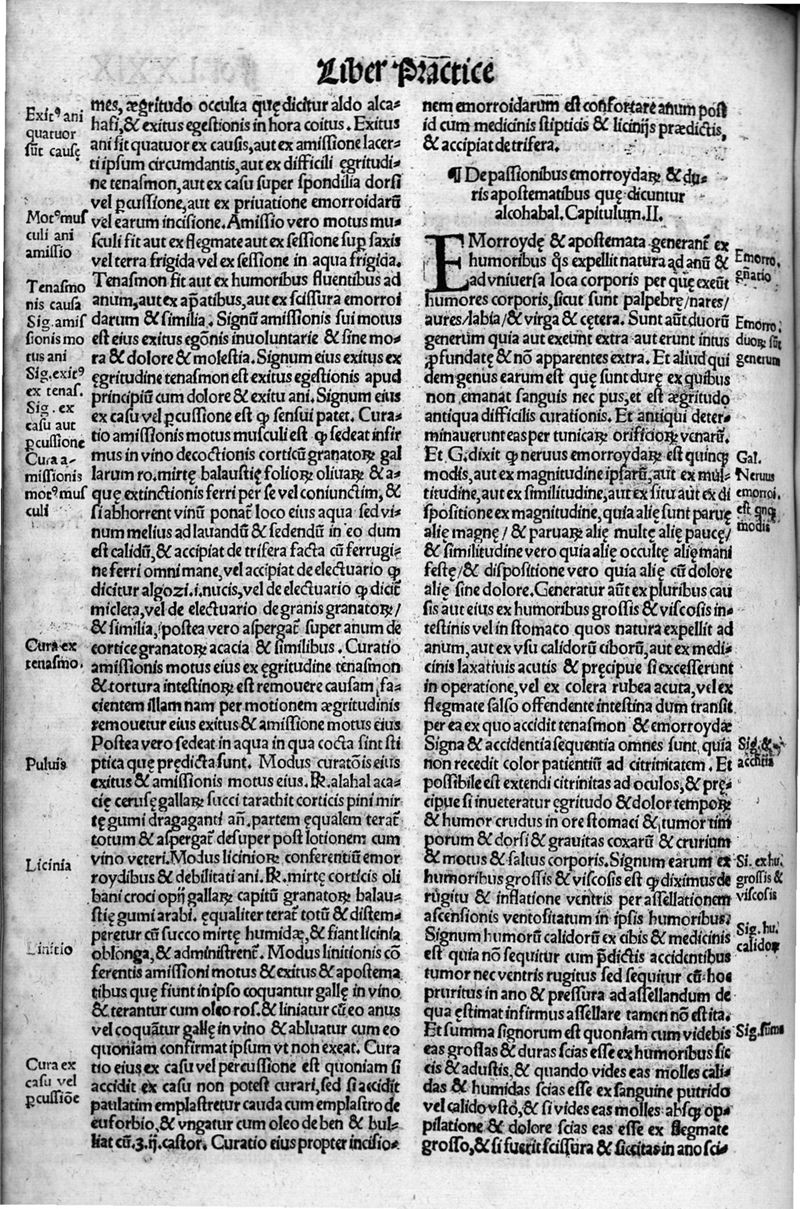 Liber Practice
mes, ægritudo occulta quę dicitur aldo alca-
hasi, & exitus egestionis in hora coitus. Exitus
ani fit quatuor ex causis, aut ex amissione lacer-
ti ipsum circumdantis, aut ex difficili ęgritudi-
ne tenasmon, aut ex casu super spondilia dorsi
vel ꝑcussione, aut ex priuatione emorroidarū
vel earum incisione. Amissio vero motus mu-
sculi fit aut ex flegmate aut ex sessione sup̱ saxis
vel terra frigida vel ex sessione in aqua frigida.
Tenasmon fit aut ex humoribus fluentibus ad
anum, aut ex ap̄atibus, aut ex scissura emorroi
darum & similia. Signū amissionis sui motus
est eius exitus egōnis inuoluntarie & sine mo-
ra & dolore & molestia. Signum eius exitus ex
ęgritudine tenasmon est exitus egestionis apud
principiū cum dolore & exitu ani. Signum eius
ex casu vel ꝑcussione est ꝙ sensui patet. Cura-
tio amissionis motus musculi est ꝙ sedeat infir
mus in vino decoctionis corticū granatoꝝ gal
larum ro. mirtę balaustię folioꝝ oliuaꝝ & a-
quę extinctionis ferri per se vel coniunctim, &
si abhorrent vinū ponat̄ loco eius aqua sed vi-
num melius ad lauandū & sedendū in eo dum
est calidū, & accipiat de trisera facta cū ferrugi-
ne ferri omni mane, vel accipiat de electuario ꝙ
dicitur algozi .i. nucis, vel de electuario ꝙ dicit̄
micleta, vel de electuario de granis granatoꝝ/
& similia, postea vero aspergat̄ super anum de
cortice granatoꝝ acacia & similibus. Curatio
amissionis motus eius ex ęgritudine tenasmon
& tortura intestinoꝝ est remouere causam, fa-
cientem illam nam per motionem ægritudinis
remouetur eius exitus & amissione motus eius
Postea vero sedeat in aqua in qua cocta sint sti
ptica que prędicta sunt. Modus curatōis eius
exitus & amissionis motus eius. ℞. alahal aca-
cię cerusę gallaꝝ succi tarathit corticis pini mir
tę gumi dragaganti an̄. partem ęqualem terat̄
totum & aspergat̄ desuper post lotionem cum
vino veteri. Modus licinioꝝ conferentiū emor
roydibus & debilitati ani. ℞. mirtę corticis oli
bani croci opij gallaꝝ capitū granatoꝝ balau-
stię gumi arabi. ęqualiter terat̄ totū & distem-
peretur cū succo mirtę humidæ, & fiant licinia
oblonga, & administrent̄. Modus linitionis cō
ferentis amissioni motus & exitus & apostema
tibus quę fiunt in ipso coquantur gallę in vino
& terantur cum oleo ros. & liniatur cū eo anus
vel coquāt̄ur gallę in vino & abluatur cum eo
quoniam confirmat ipsum vt non exeat. Cura
tio eius ex casu vel percussione est quoniam si
accidit ex casu non potest curari, sed si accidit
paulatim emplastretur cauda cum emplastro de
euforbio, & vngatur cum oleo de ben & bul-
liat cū .ʒ.ij. castor. Curatio eius propter incisio-
Exitꝰ ani
quatuor
sūt causę
Motꝰ mus
culi ani
amissio
Tenasmo
nis causa
Sig. amis
sionis mo
tus ani
Sig. exitꝰ
ex tenas.
Sig. ex
casu aut
ꝑcussione
Cura a-
missionis
motꝰ mus
culi
Cura ex
tenasmo.
Puluis
Licinia
Linitio
Cura ex
casu vel
ꝑcussiōe
nem emorroidarum est confortare anum post
id cum medicinis stipticis & licinijs prædictis,
& accipiat de trisera.
¶ De passionibus emorroydaꝝ & du-
ris apostematibus quę dicuntur
alcohabal. Capitulum. II.
EMorroydę & apostemata generant̄ ex
humoribus q̄s expellit natura ad anū &
ad vniuersa loca corporis per quę exeūt
humores corporis, sicut sunt palpebrę/nares/
aures/labia/& virga & cętera. Sunt aūt duorū
generum quia aut exeunt extra aut erunt intus
ꝓfundatę & nō apparentes extra. Et aliud qui
dem genus earum est quę sunt durę ex quibus
non emanat sanguis nec pus, et est ægritudo
antiqua difficilis curationis. Et antiqui deter-
minauerunt eas per tunicaꝝ orificioꝝ venarū.
Et G. dixit ꝙ neruus emorroydaꝝ est quinꝗ
modis, aut ex magnitudine ipsarū, aut ex mul-
titudine, aut ex similitudine, aut ex situ aut ex di
spositione ex magnitudine, quia alię sunt paruę
alię magnę/ & paruaꝝ alię multę alię paucę/
& similitudine vero quia alię occultę alię mani
festę/ & dispositione vero quia alię cū dolore
alię sine dolore. Generatur aūt ex pluribus cau
sis aut eius ex humoribus grossis & viscosis in-
testinis vel in stomaco quos natura expellit ad
anum, aut ex vsu calidorū ciborū, aut ex medi-
cinis laxatiuis acutis & pręcipue si excesserunt
in operatione, vel ex colera rubea acuta, vel ex
flegmate salso offendente intestina dum transit
per ea ex quo accidit tenasmon & emorroydæ
Signa & accidentia sequentia omnes sunt quia
non recedit color patientiū ad citrinitatem. Et
possibile est extendi citrinitas ad oculos, & prę-
cipue si inueteratur ęgritudo & dolor tempoꝝ
& humor crudus in ore stomaci & tumor tim
porum & dorsi & grauitas coxarū & crurium
& motus & saltus corporis. Signum earum ex
humoribus grossis & viscosis est ꝙ diximus de
rugitu & inflatione ventris per assellationem
ascensionis ventositatum in ipsis humoribus.
Signum humorū calidorū ex cibis & medicinis
est quia nō sequitur cum p̄dictis accidentibus
tumor nec ventris rugitus sed sequitur cū hoc
pruritus in ano & pressura ad assellandum de
qua ęstimat infirmus assellare tamen nō est ita.
Et summa signorum est quoniam cum videbis
eas grossas & duras scias esse ex humoribus sic
cis & adustis, & quando vides eas molles cali-
das & humidas scias esse ex sanguine putrido
vel calido vsto, & si vides eas molles absꝗ op-
pilatione & dolore scias eas esse ex flegmate
grosso, & si fuerit scissura & siccitas in ano sci-
Emorro.
gn̄atio
Emorro.
duoꝝ sūt
generum
Gal.
Neruus
emorroi.
est qnꝗ
modis
Sig. &
accn̄tia
Si. ex hu.
grossis &
viscosis
Sig. hu.
calidoꝝ
Sig. sūma